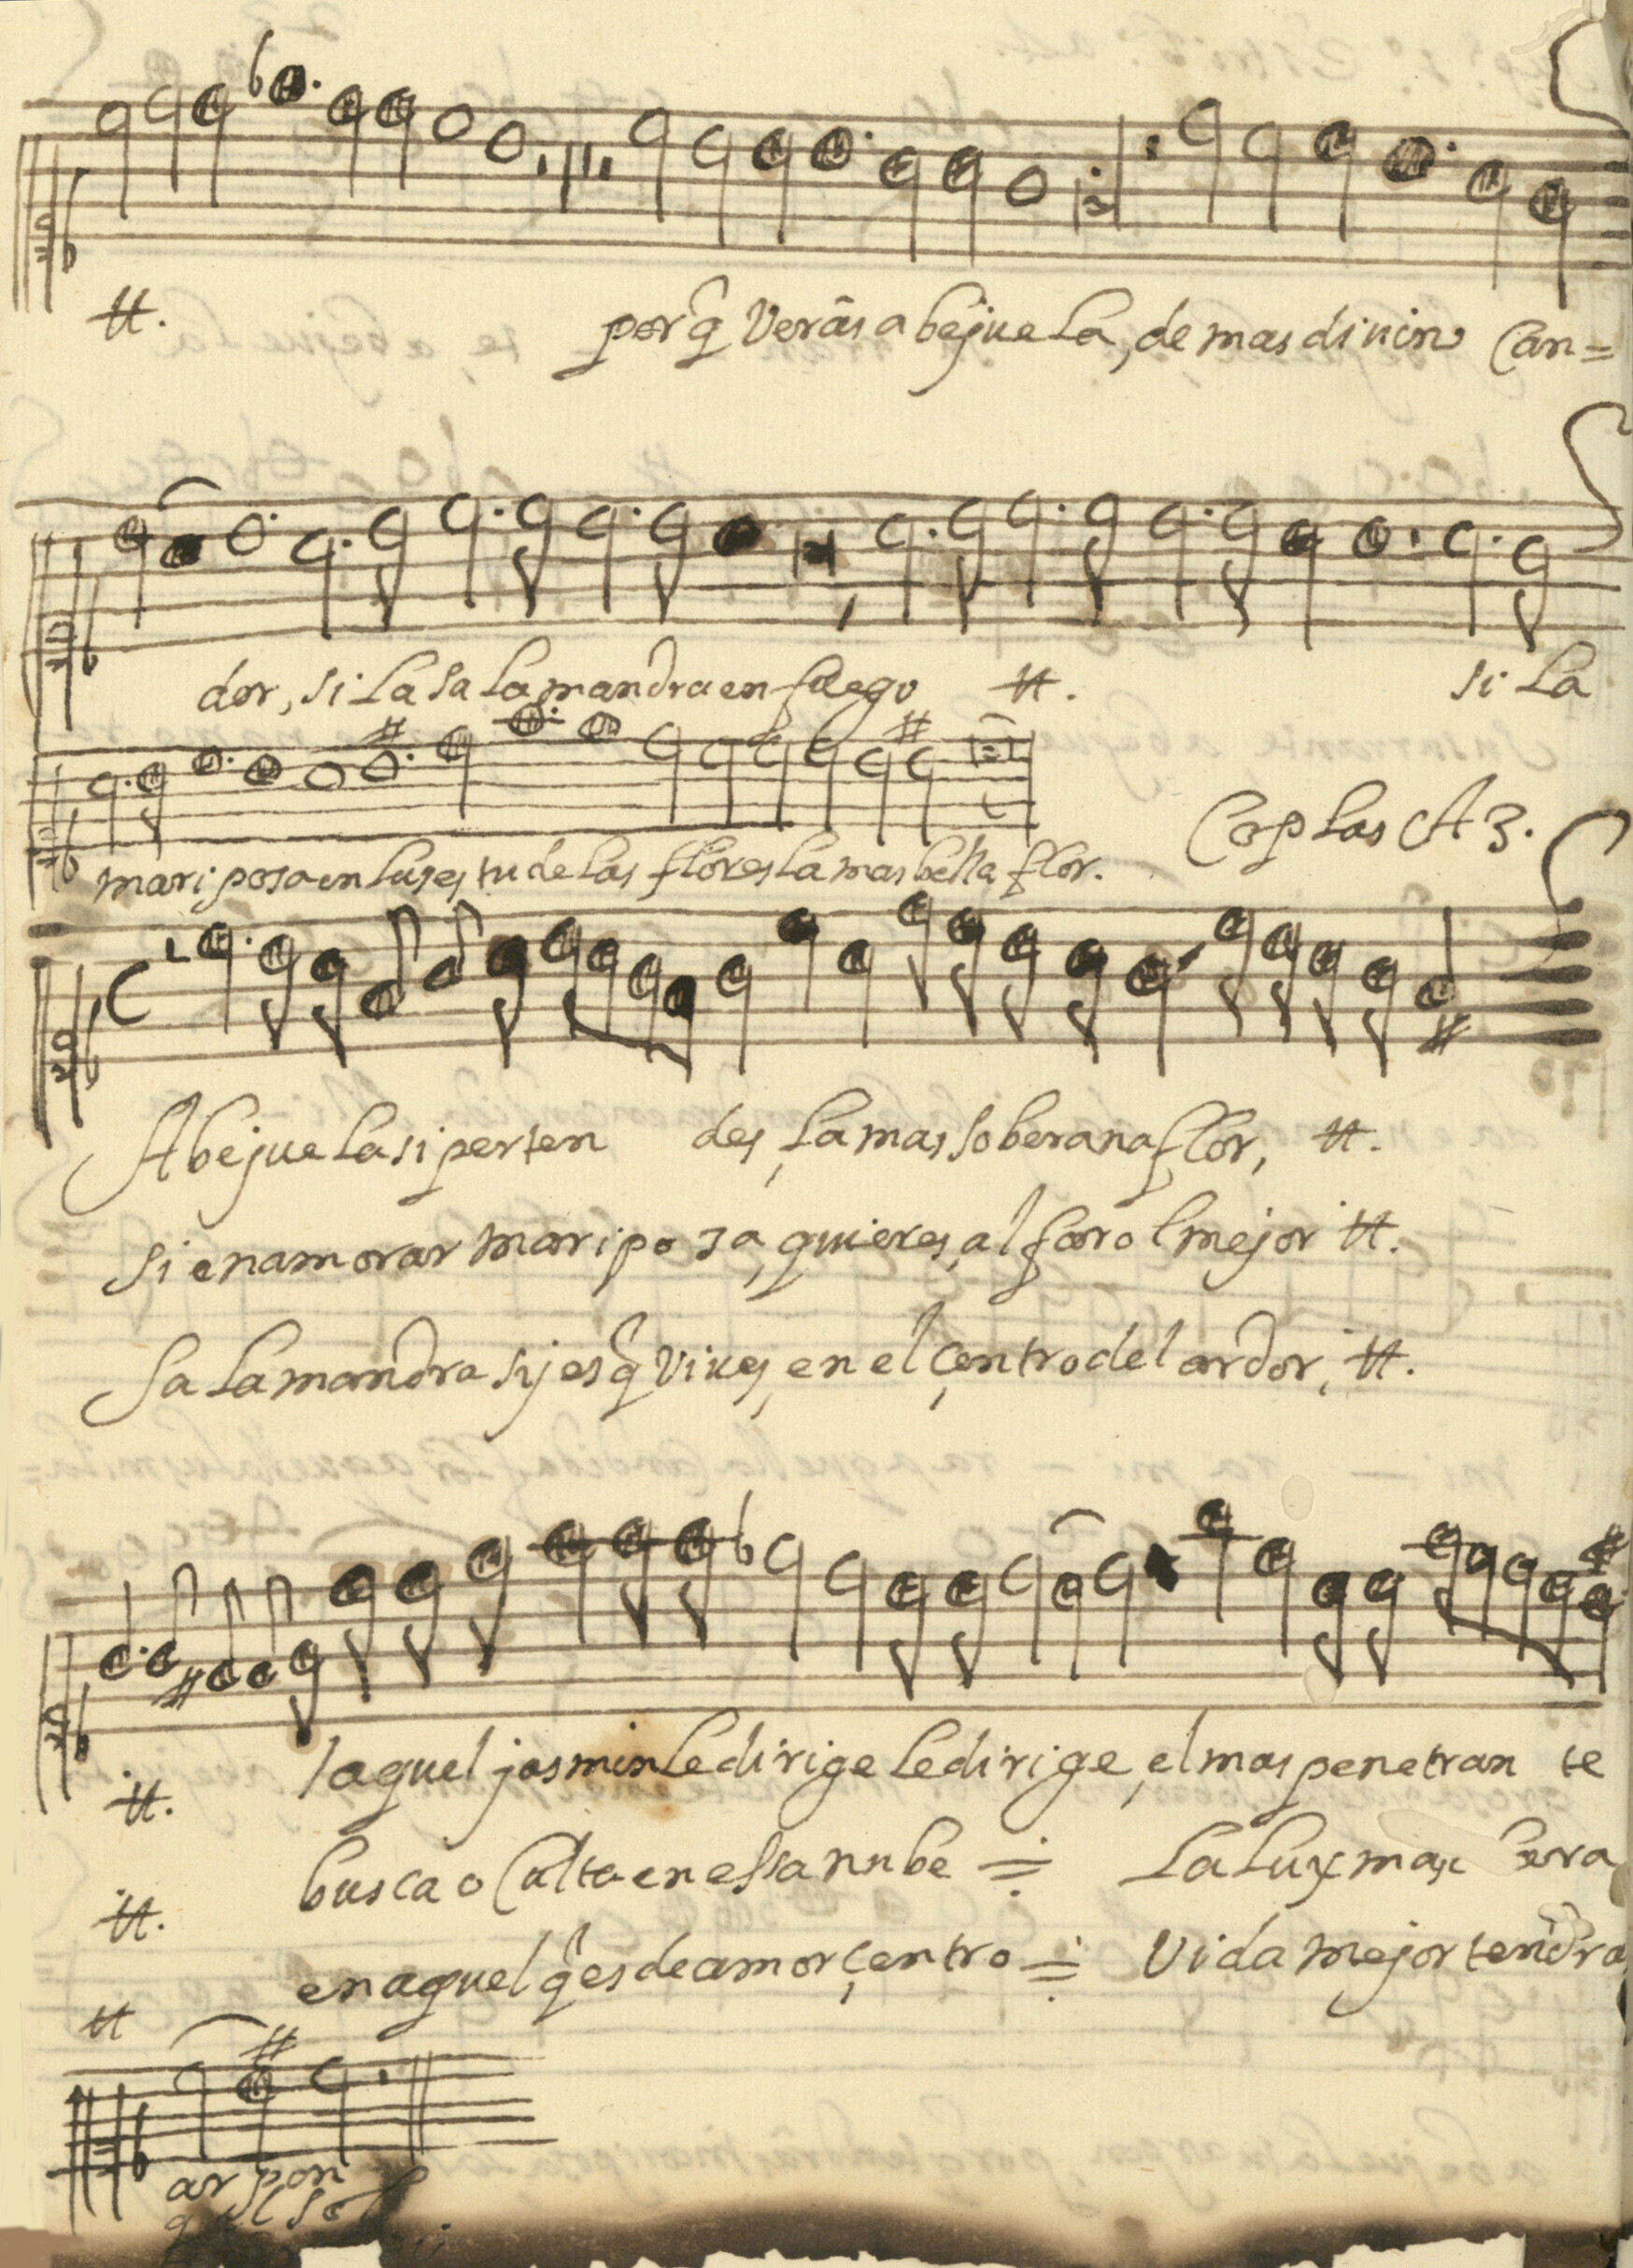 tt. porq̃ Verâs abejuela, de mas divino Can=
dor, si la salamandra en fuego tt. si la
mariposa en luses tu de las flores la mas bella flor.
Coplas A 3.
Abejuela si perten des, la mas soberana flor, tt.
Si enamorar mariposa, quieres, al farol mejor tt.
Salamandra sij es q̃ Vives, en el çentro del ardor, tt.
tt. laquel jasmin le dirige le dirige, el mas penetran te
tt. busca o Culta en essa nube = La Lux max bera
tt en aquel q̃ es de amor çentro = Vida mejor tendra
arpon
q el sol